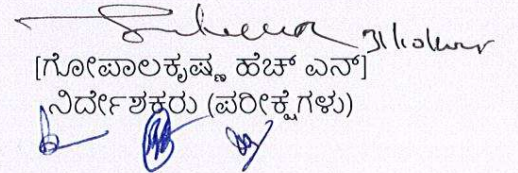 [ಗೋಪಾಲಕೃಷ್ಣ ಹೆಚ್ ಎನ್]
ನಿರ್ದೇಶಕರು (ಪರೀಕ್ಷೆಗಳು)